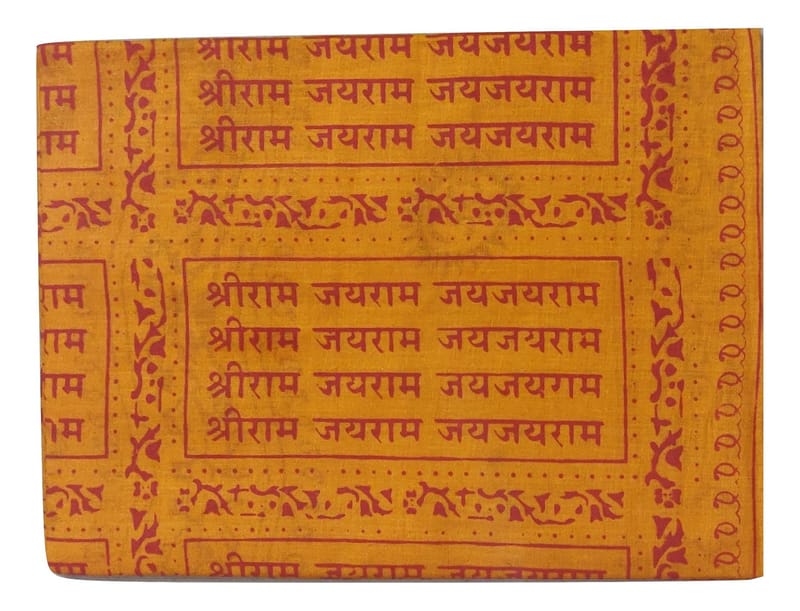 श्रीराम जयराम जयजयराम
राम श्रीराम जयराम जयजयराम
राम श्रीराम जयराम जयजयराम
राम श्रीराम जयराम जयजयराम
राम श्रीराम जयराम जयजयराम
राम श्रीराम जयराम जयजयराम
राम श्रीराम जयराम जयजयराम
श्रीराम जयराम जयजयराम